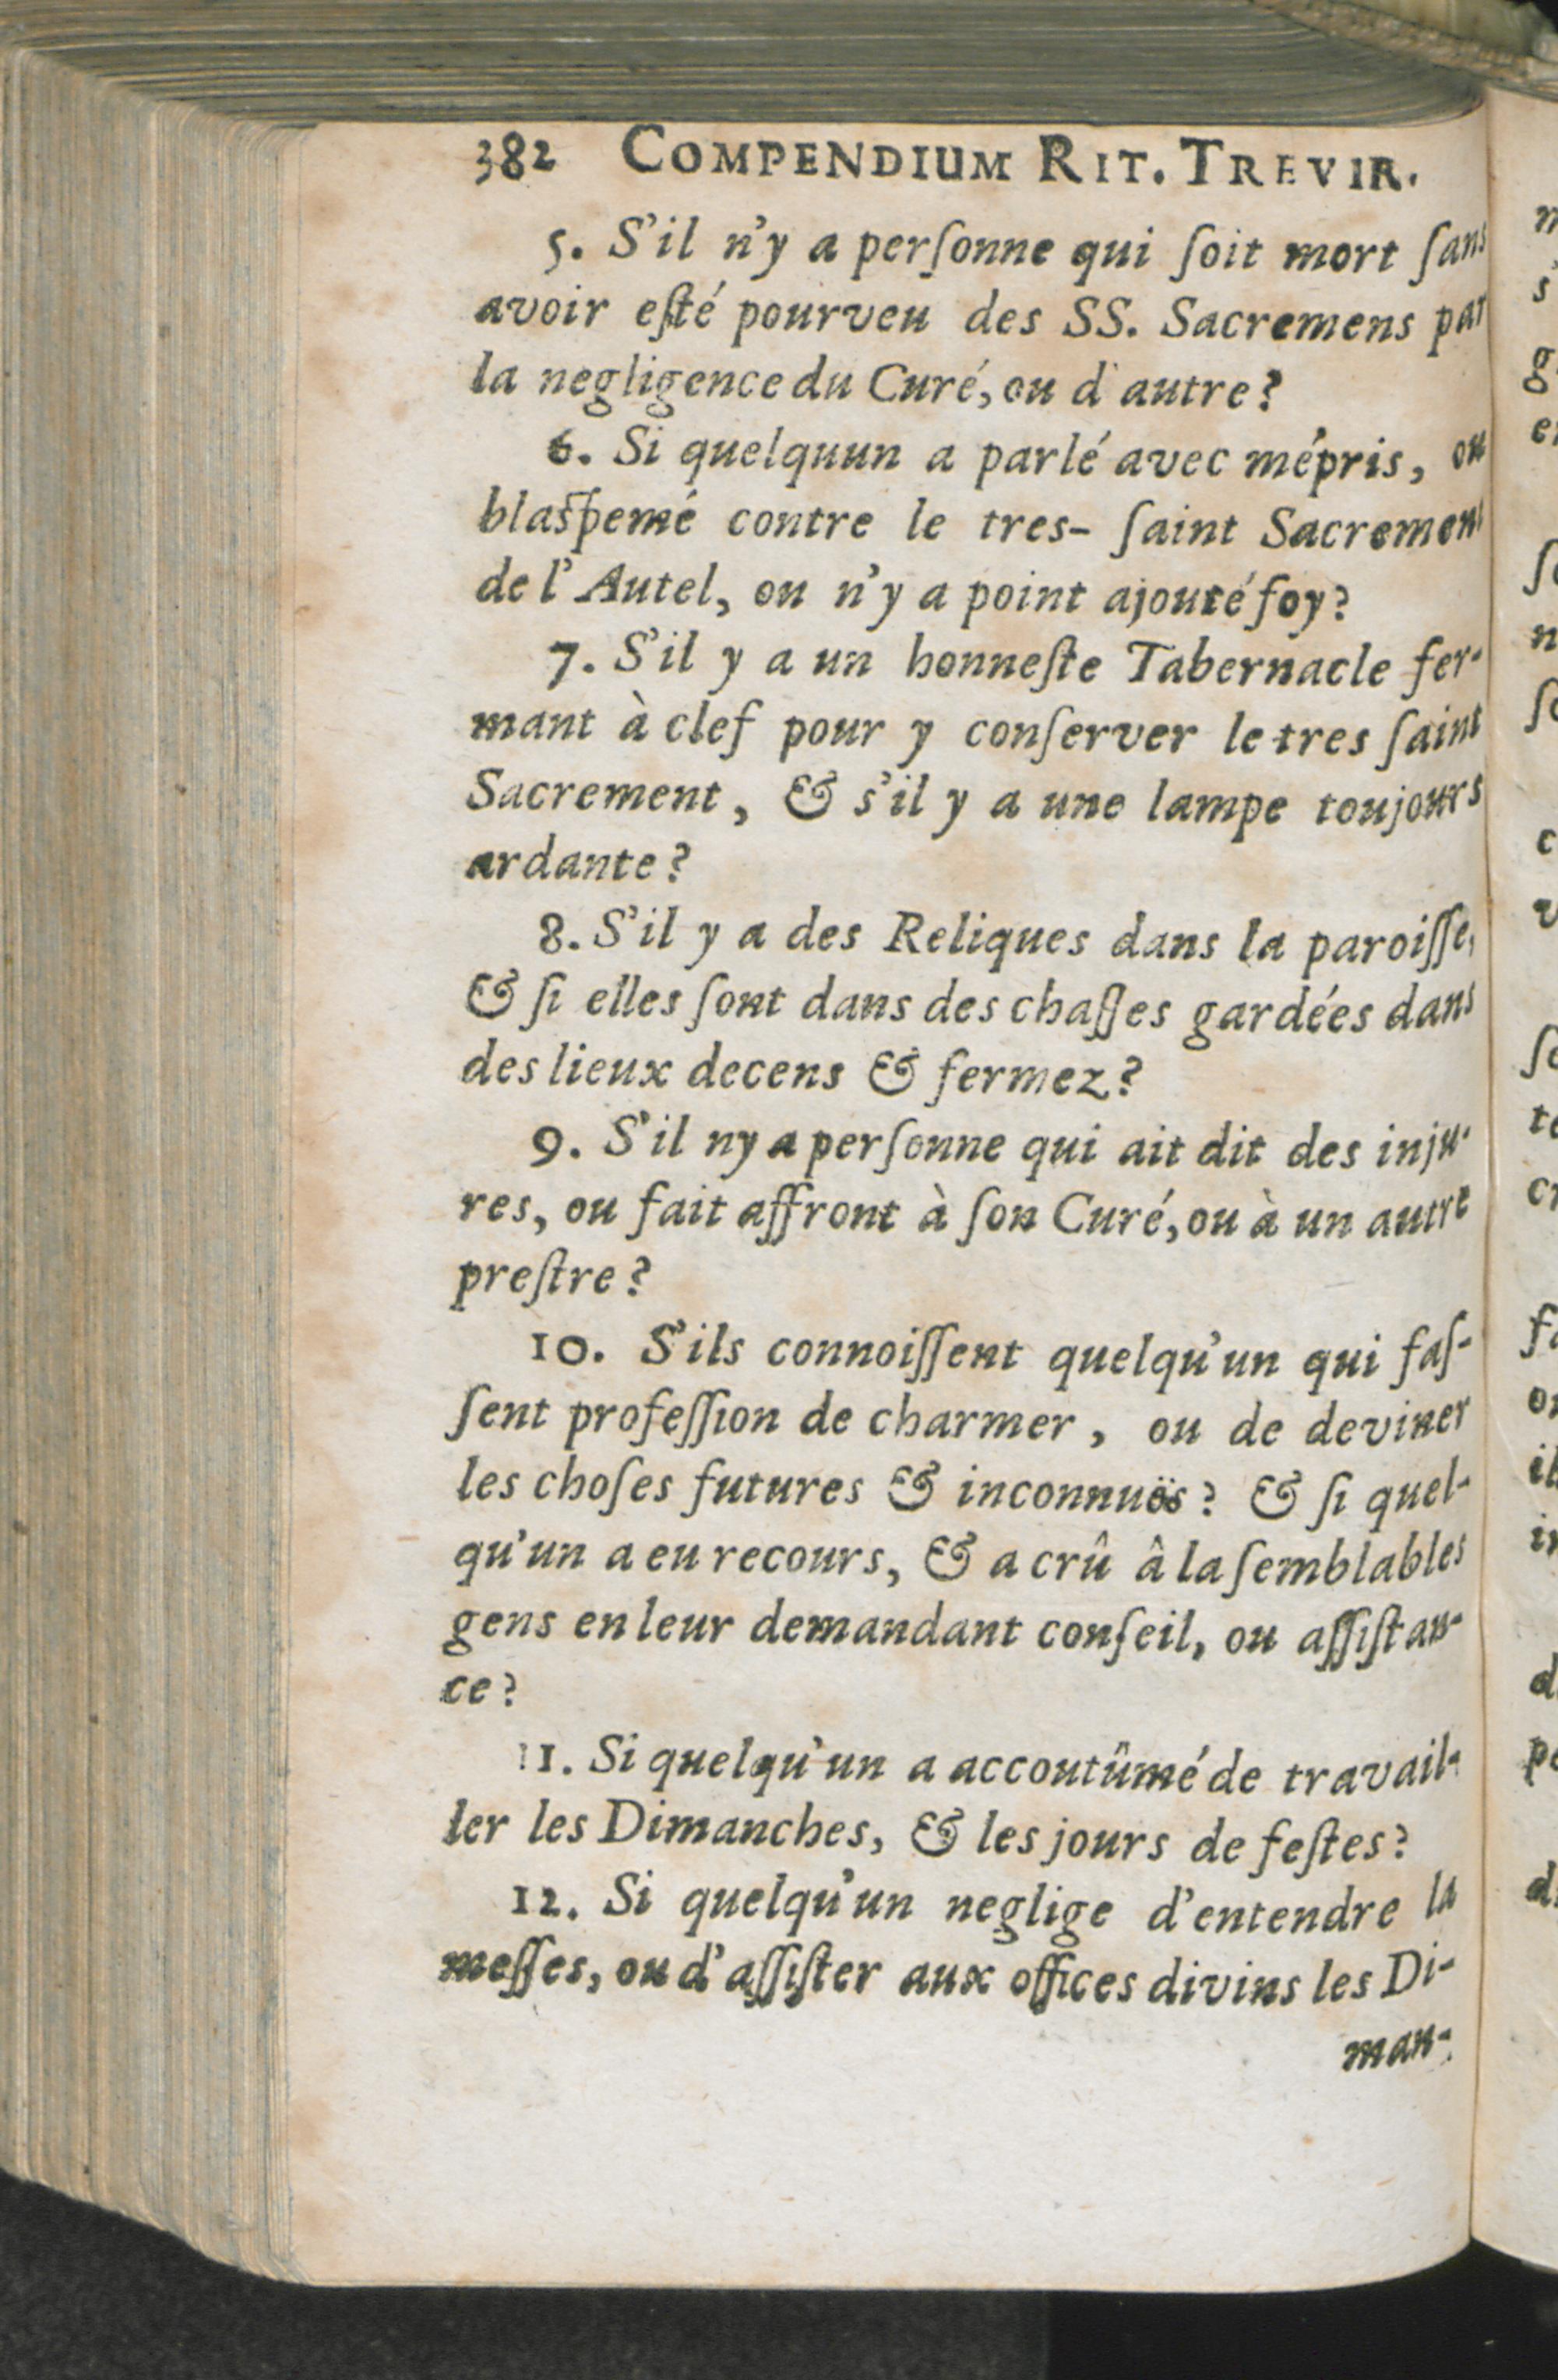 382 COMPENDIUM RIT. TREVIR.
5. S'il n'y a perſonne qui ſoit mort ſans
avoir eſté pourveu des SS. Sacremens par
la negligence du Curé, ou d'autre?
6. Si quelquun a parlé avec mépris, ou
blaſpemé contre le tres- ſaint Sacrement
de l'Autel, ou n'y a point ajouté foy?
7. S'il y a un honneſte Tabernacle fer-
mant à clef pour y conſerver le tres ſaint
Sacrement, & s'il y a une lampe toujours
ardante?
8. S'il y a des Reliques dans la paroiſſe,
& ſi elles ſont dans des chaſſes gardées dans
des lieux decens & fermez?
9. S'il ny a perſonne qui ait dit des inju-
res, ou fait affront à ſon Curé, ou à un autre
preſtre?
10. S'ils connoiſſent quelqu'un qui faſ-
ſent profeſſion de charmer, ou de deviner
les choſes futures & inconnuës? & ſi quel-
qu'un a eu recours, & a crû â la ſemblables
gens en leur demandant conſeil, ou aſſiſtan-
ce?
11. Si quelqu'un a accoutûmé de travail-
ler les Dimanches, & les jours de feſtes?
12. Si quelqu'un neglige d'entendre la
meſſes, ou d'aſſiſter aux offices divins les Di-
man-